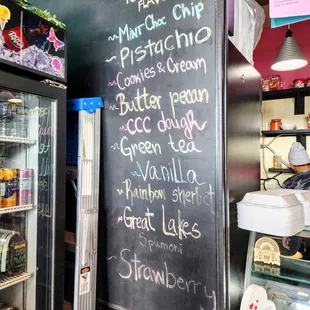 FLAVO
~Mint Choc Chip
~Pistachio
~Cookies & Cream
~Butter pecan
~CCC dough
~Green tea
~Vanilla
~Rainbow sherbet
~Great Lakes
Spumoni
~Strawberry